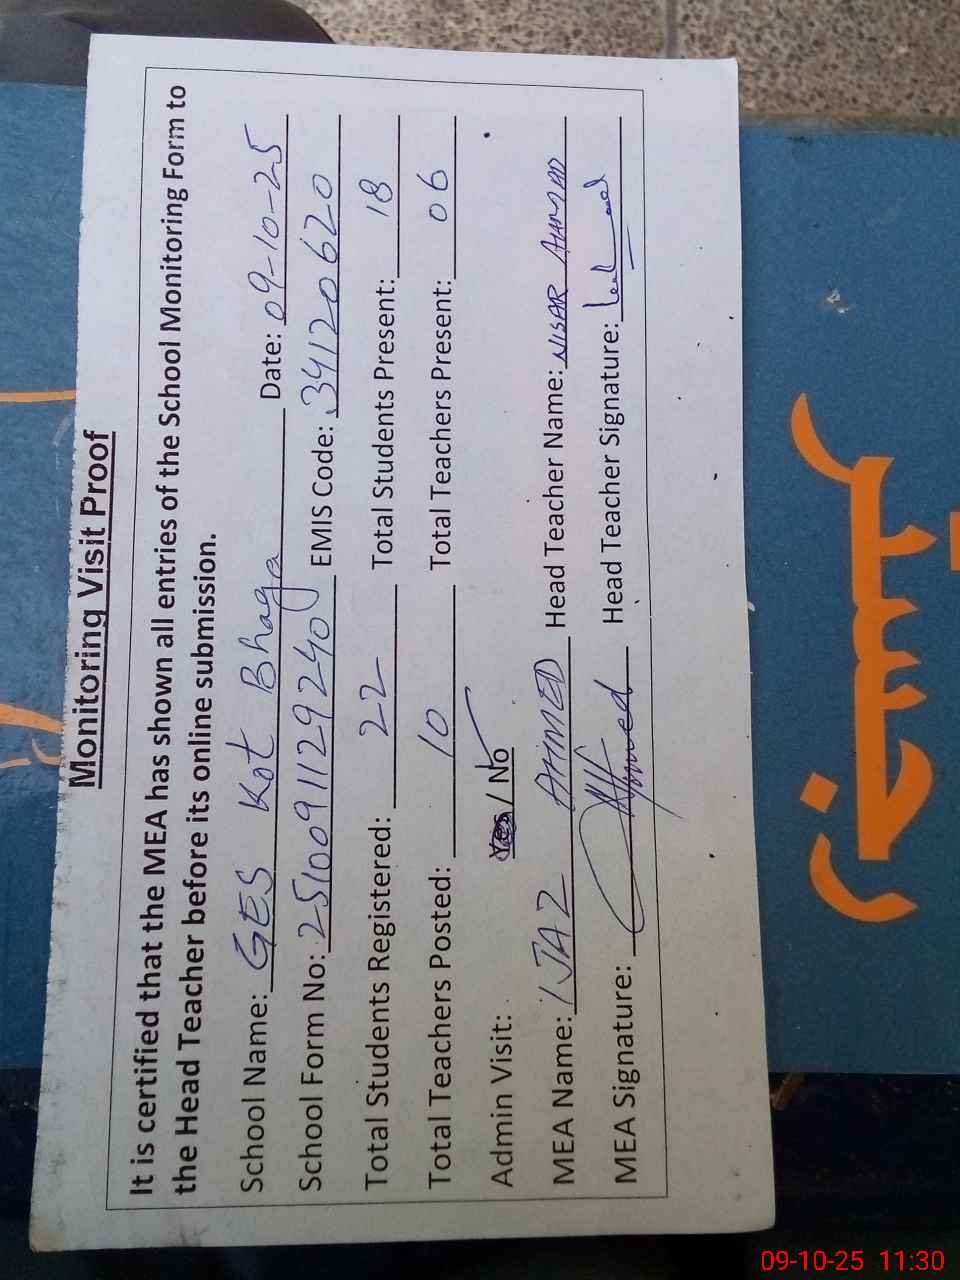 Monitoring Visit Proof
It is certified that the MEA has shown all entries of the School Monitoring Form to
the Head Teacher before its online submission.
School Name: GES Kot Bhaga Date: 09-10-25
School Form No: 2510091129240 EMIS Code: 34120620
Total Students Registered: 22 Total Students Present: 18
Total Teachers Posted: 10 Total Teachers Present: 06
Admin Visit: Yes / No ✓
MEA Name: IJAZ AHMED Head Teacher Name: NISAR AHMAD
MEA Signature: Ahmed Head Teacher Signature:
رجسٹر
09-10-25 11:30